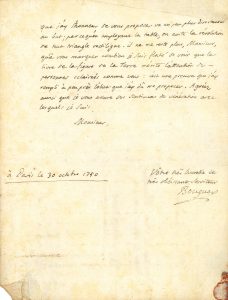 que j'ay l'honneur de vous proposer va un peu plus directement
au but, parce qu'en employant la table, on evite la resolution
de tout triangle rectiligne. il ne me reste plus, Monsieur,
qu'a vous marquer combien je suis flaté de voir que le
livre de la figure de la Terre merite l'attention des
personnes éclairées comme vous : c'est une preuve que j'ay
rempli à peu près l'objet que j'ay dû me proposer. Agréez
aussi que je vous assure des sentimens de vénération avec
lesquels je suis
Monsieur,
à Paris le 30 octobre 1750
Votre très humble et
très obéissant serviteur
Bouguer